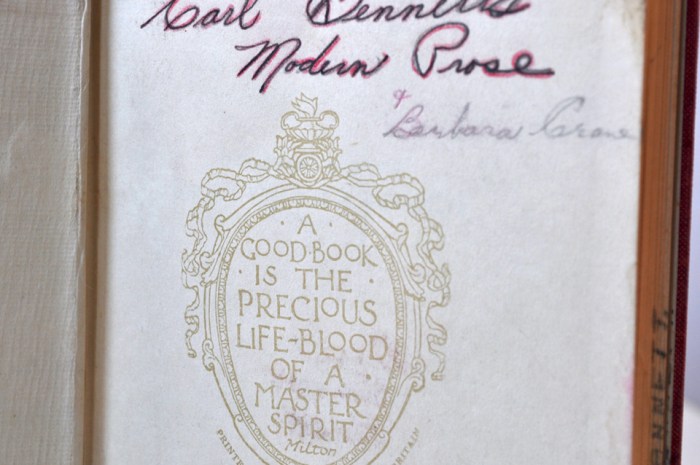 Carl Bennett's
Modern Prose
&
Barbara Crane
· A ·
GOOD·BOOK
· IS THE ·
PRECIOUS
LIFE-BLOOD
OF A ·
MASTER
SPIRIT
Milton
PRINTE
BRITAIN
NNETT.